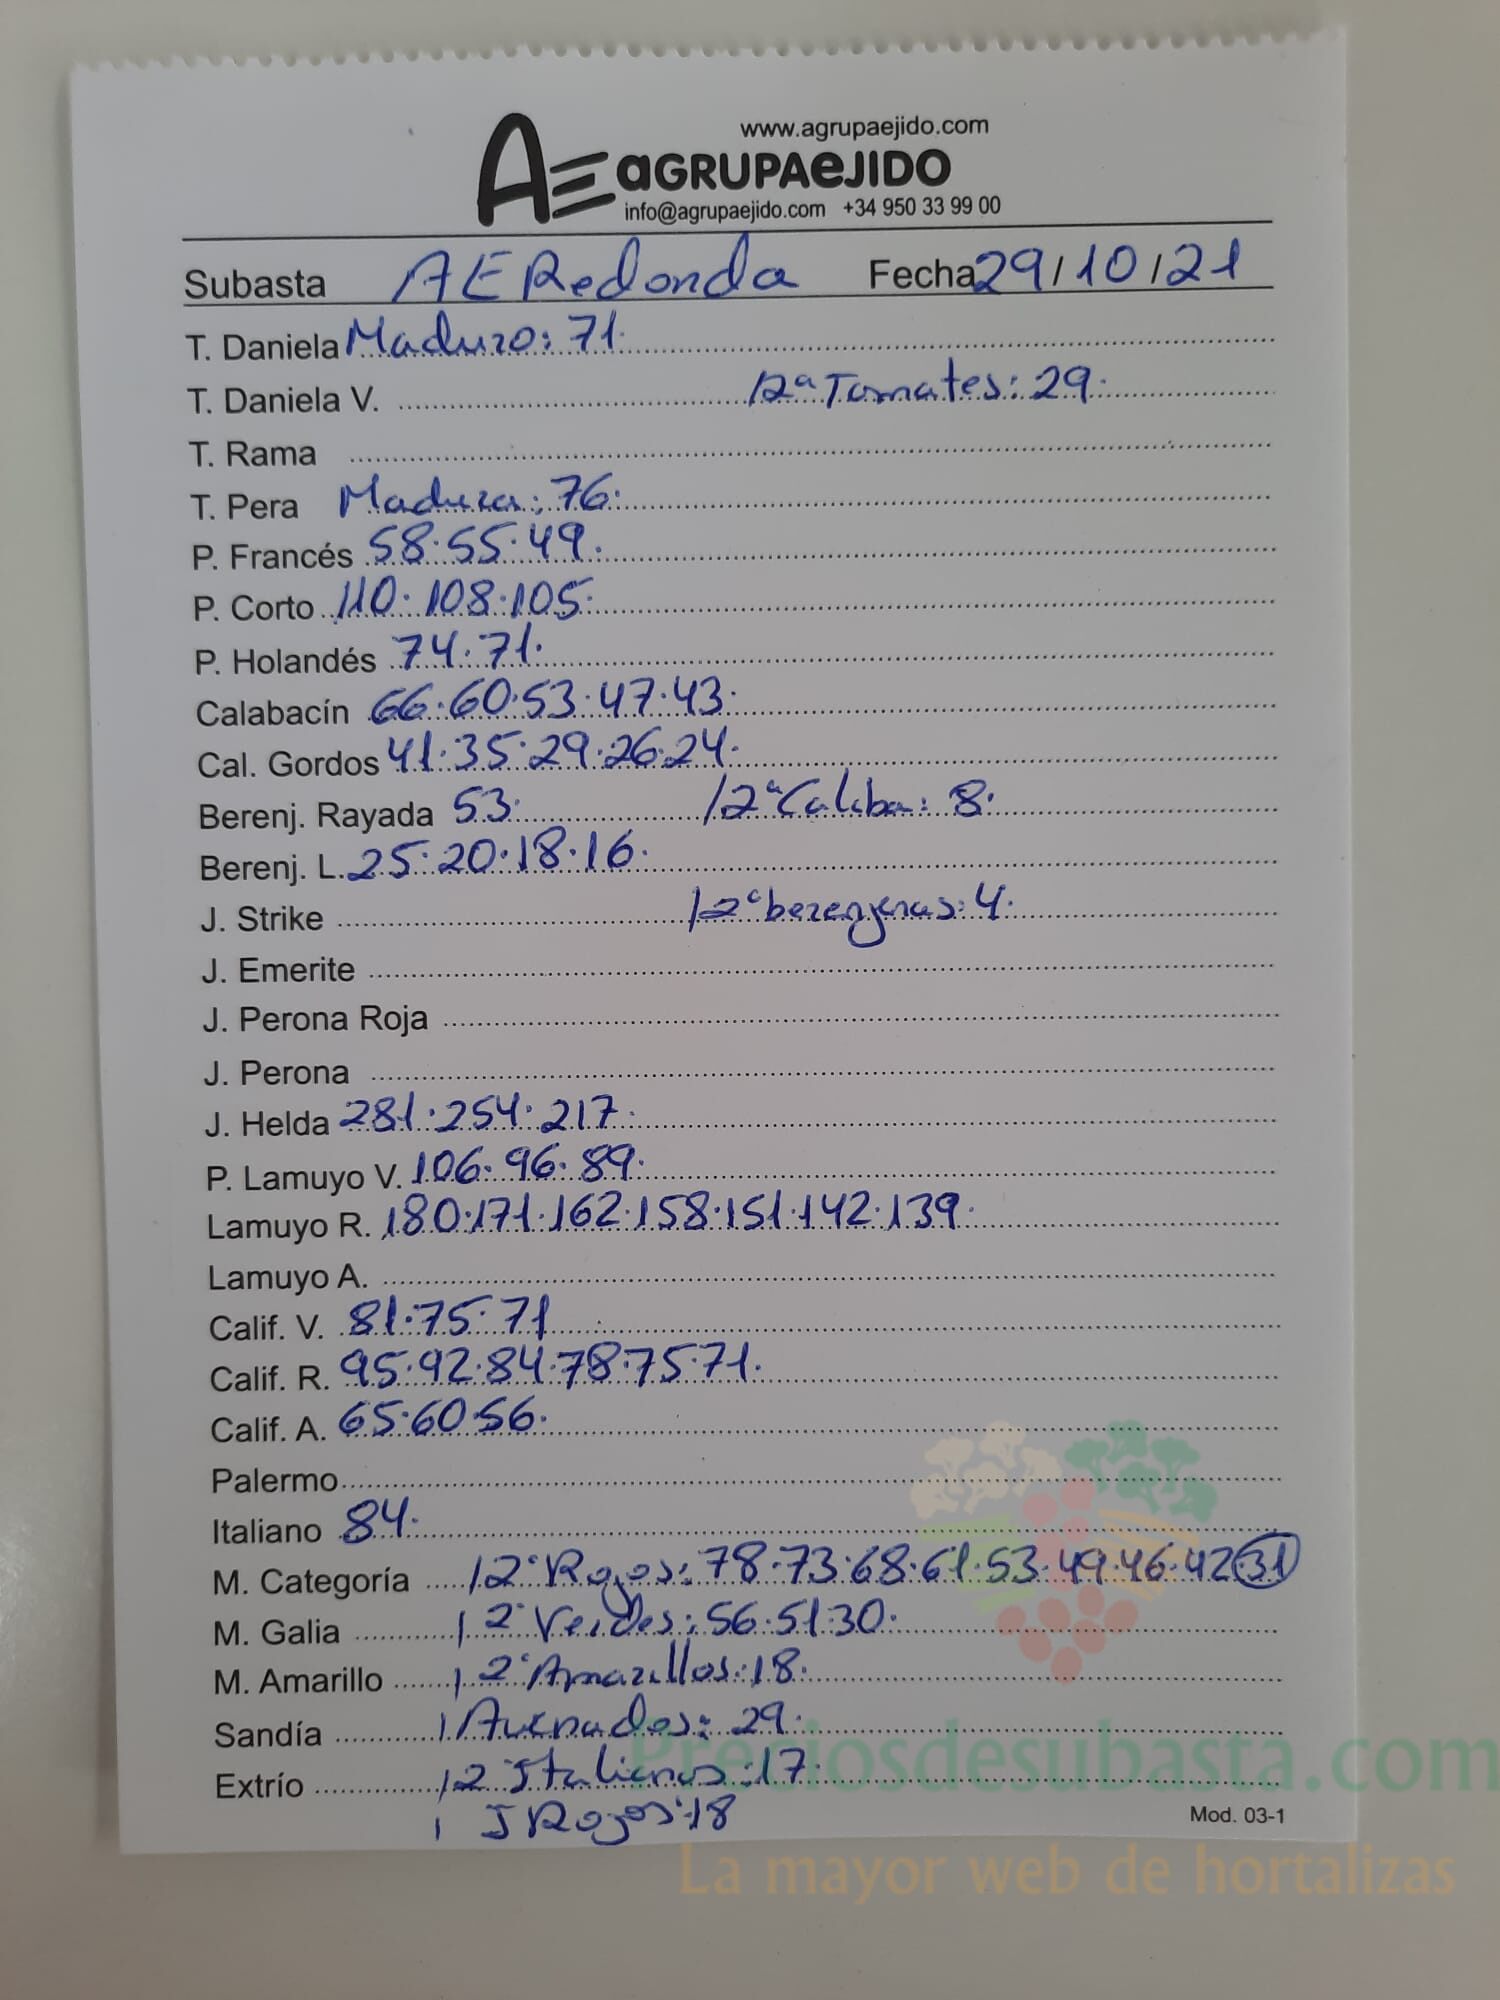 www.agrupaejido.com
AE aGRUPAeJIDO
info@agrupaejido.com +34 950 33 99 00
Subasta AE Redonda Fecha 29/10/21
T. Daniela Maduro: 71.
T. Daniela V. /2ª Tomates: 29.
T. Rama
T. Pera Madura: 76.
P. Francés 58.55.49.
P. Corto 110.108.105.
P. Holandés 74.71.
Calabacín 66.60.53.47.43.
Cal. Gordos 41.35.29.26.24.
Berenj. Rayada 53. /2ª Calaba: 8.
Berenj. L. 25.20.18.16.
J. Strike /2ª berenjenas: 4.
J. Emerite
J. Perona Roja
J. Perona
J. Helda 281.254.217.
P. Lamuyo V. 106.96.89.
Lamuyo R. 180.171.162.158.151.142.139.
Lamuyo A.
Calif. V. 81.75.71
Calif. R. 95.92.84.78.75.71.
Calif. A. 65.60.56.
Palermo
Italiano 84.
M. Categoría /2ª Rojos: 78.73.68.61.53.49.46.42 31
M. Galia / 2ª Verdes: 56.51.30.
M. Amarillo / 2ª Amarillos: 18.
Sandía / Avenados: 29.
Extrío /2 Italianos: 17.
/ J Rojos: 18
Mod. 03-1
Preciosdesubasta.com
La mayor web de hortalizas